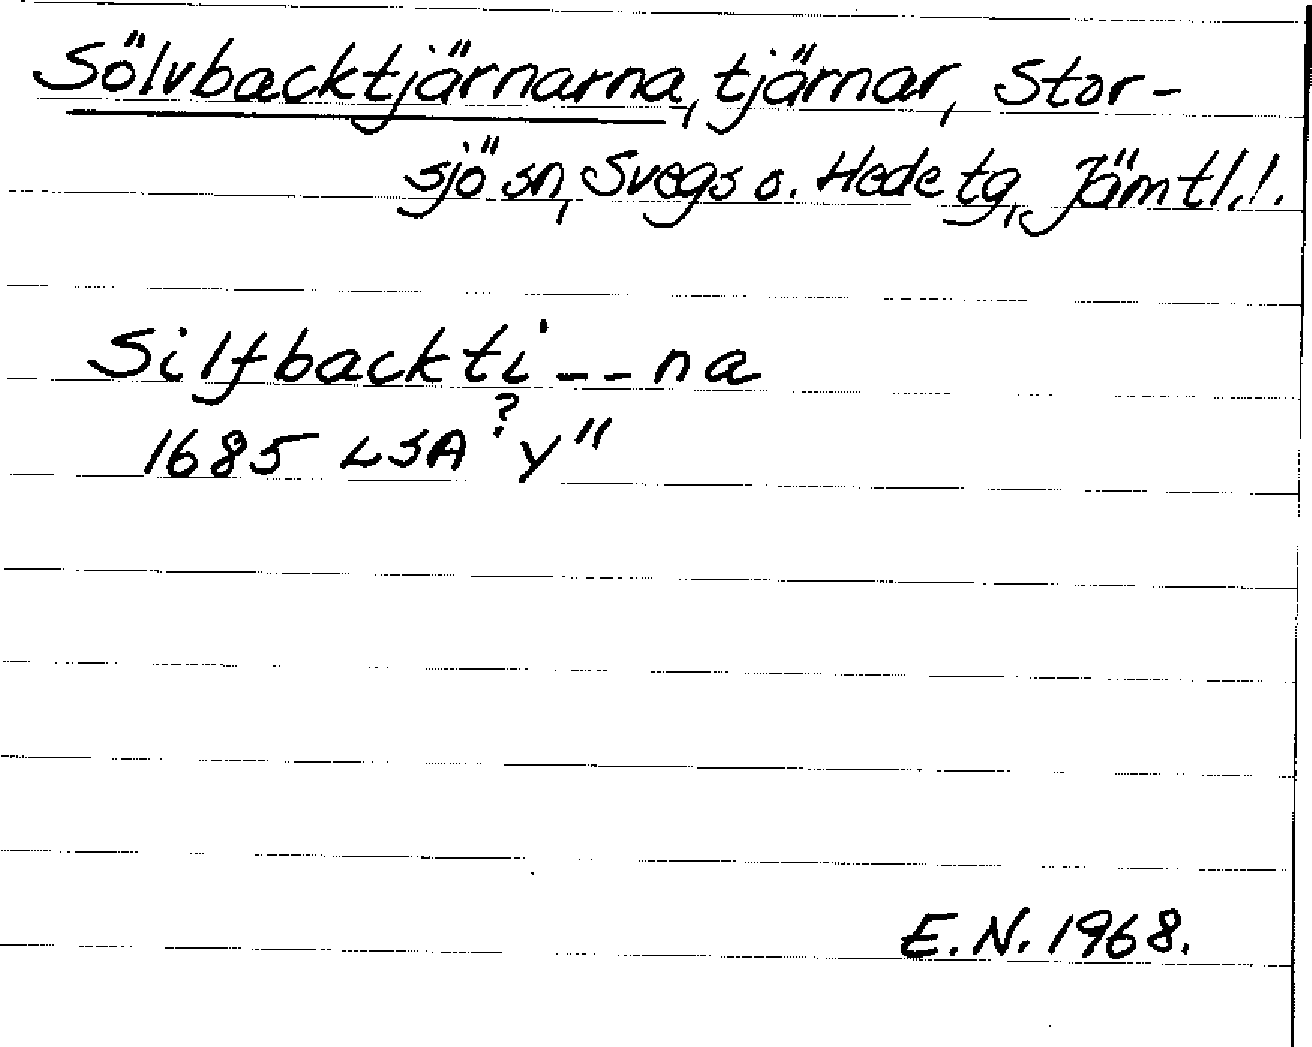 Sölvbacktjärnarna, tjärnar, Stor-
sjö sn, Svegs o. Hede tg, Jämtl.l.
Silfbackti--na
1685 LSA ? Y"
E.N. 1968.